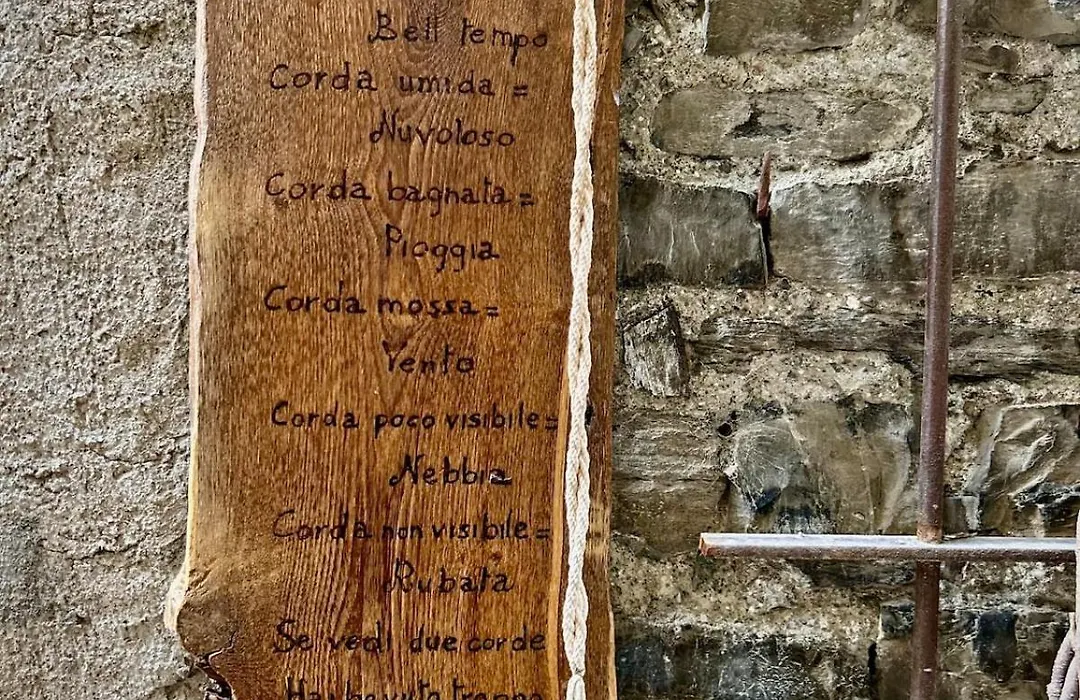 Bell tempo
Corda umida =
Nuvoloso
Corda bagnata =
Pioggia
Corda mossa =
Vento
Corda poco visibile =
Nebbia
Corda non visibile =
Rubata
Se vedi due corde
Hai bevuto troppo